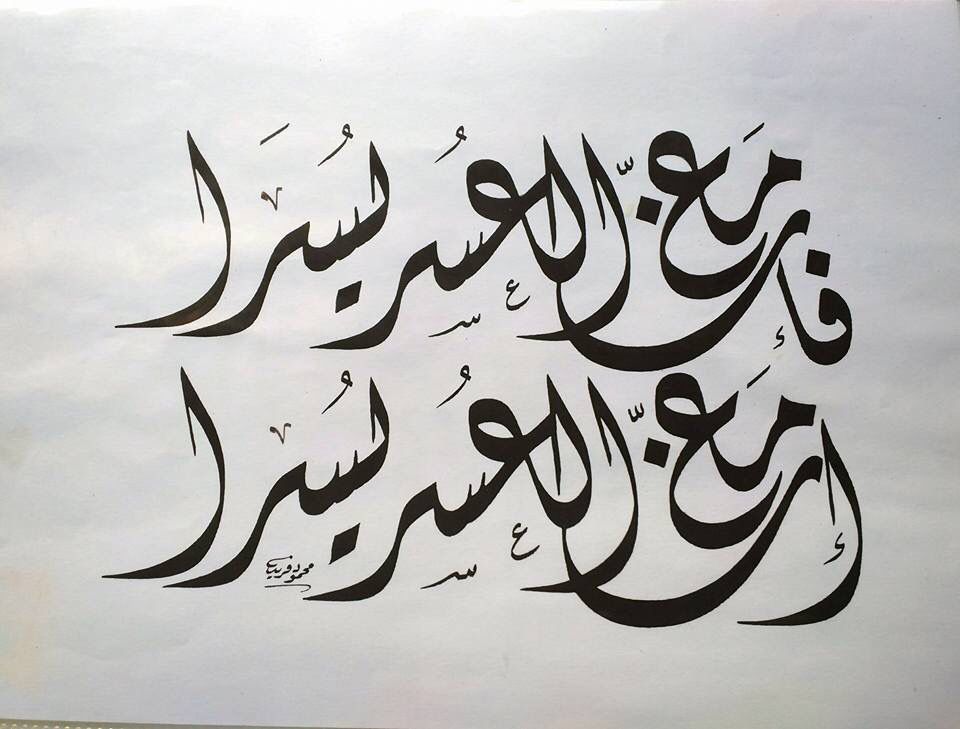 فإن مع العسر يسرا
إن مع العسر يسرا
محمود فريد